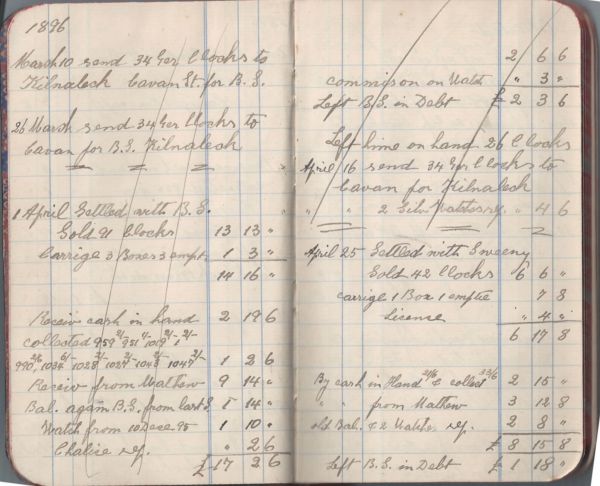 1896
March 10 send 34 Ger Clocks to
Kilnaleck Cavan St. for B. S.
26 March send 34 Ger Clocks to
Cavan for B.S. Kilnaleck
1 April Settled with B. S.
Sold 91 Clocks 13 13 "
Carrige 3 Boxes 3 empt. 1 3 "
14 16 "
Receiv cash in hand 2 19 6
collected 959 2/- 951 1/- 1019 2/- 1 2/-
990 2/6, 1034 6/- 1028 2/- 1027 2/- 1043 2/- 1047 2/- 1 2 6
Receiv from Mathew 9 14 "
Bal. again B.S. from last S. 1 14 "
Watch from 10 Dece 95 1 10 "
Chalice rep. " 2 6
£ 17 2 6
2 6 6
commison on Watch " 3 "
Left B.S. in Debt £ 2 3 6
Left hime on hand 26 Clocks
April 16 send 34 Ger Clocks to
Cavan for Kilnaleck
" " 2 Silv Watches rep. " 4 6
April 25 Settled with Sweeny
Sold 42 Clocks 6 6 "
carrige 1 Box 1 emptie 7 8
License " 4 "
6 17 8
By cash in Hand 21/6 & collect 33/6 2 15 "
" " from Mathew 3 12 8
old Bal. & 2 Watches rep. 2 8 "
£ 8 15 8
Left B.S. in Debt £ 1 18 "